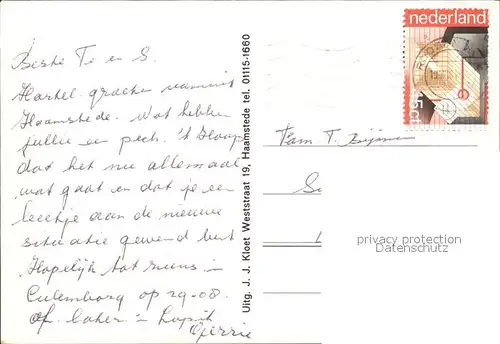 Beste Ti en S.
Hartel. groeten vanuit
Haamstede. Wat hebben
jullie en pech. 't Hoop
dat het nu allemaal
wat gaat en dat je een
beetje aan de nieuwe
situatie gewend bent
Hopelijk tot ziens in
Culemborg op 29-08.
of later in Lopik
Gerrie
Uitg. J. J. Kloet Weststraat 19, Haamstede tel. 01115-1660
nederland
45ct
Fam T.
privacy protection
DelcampeNet